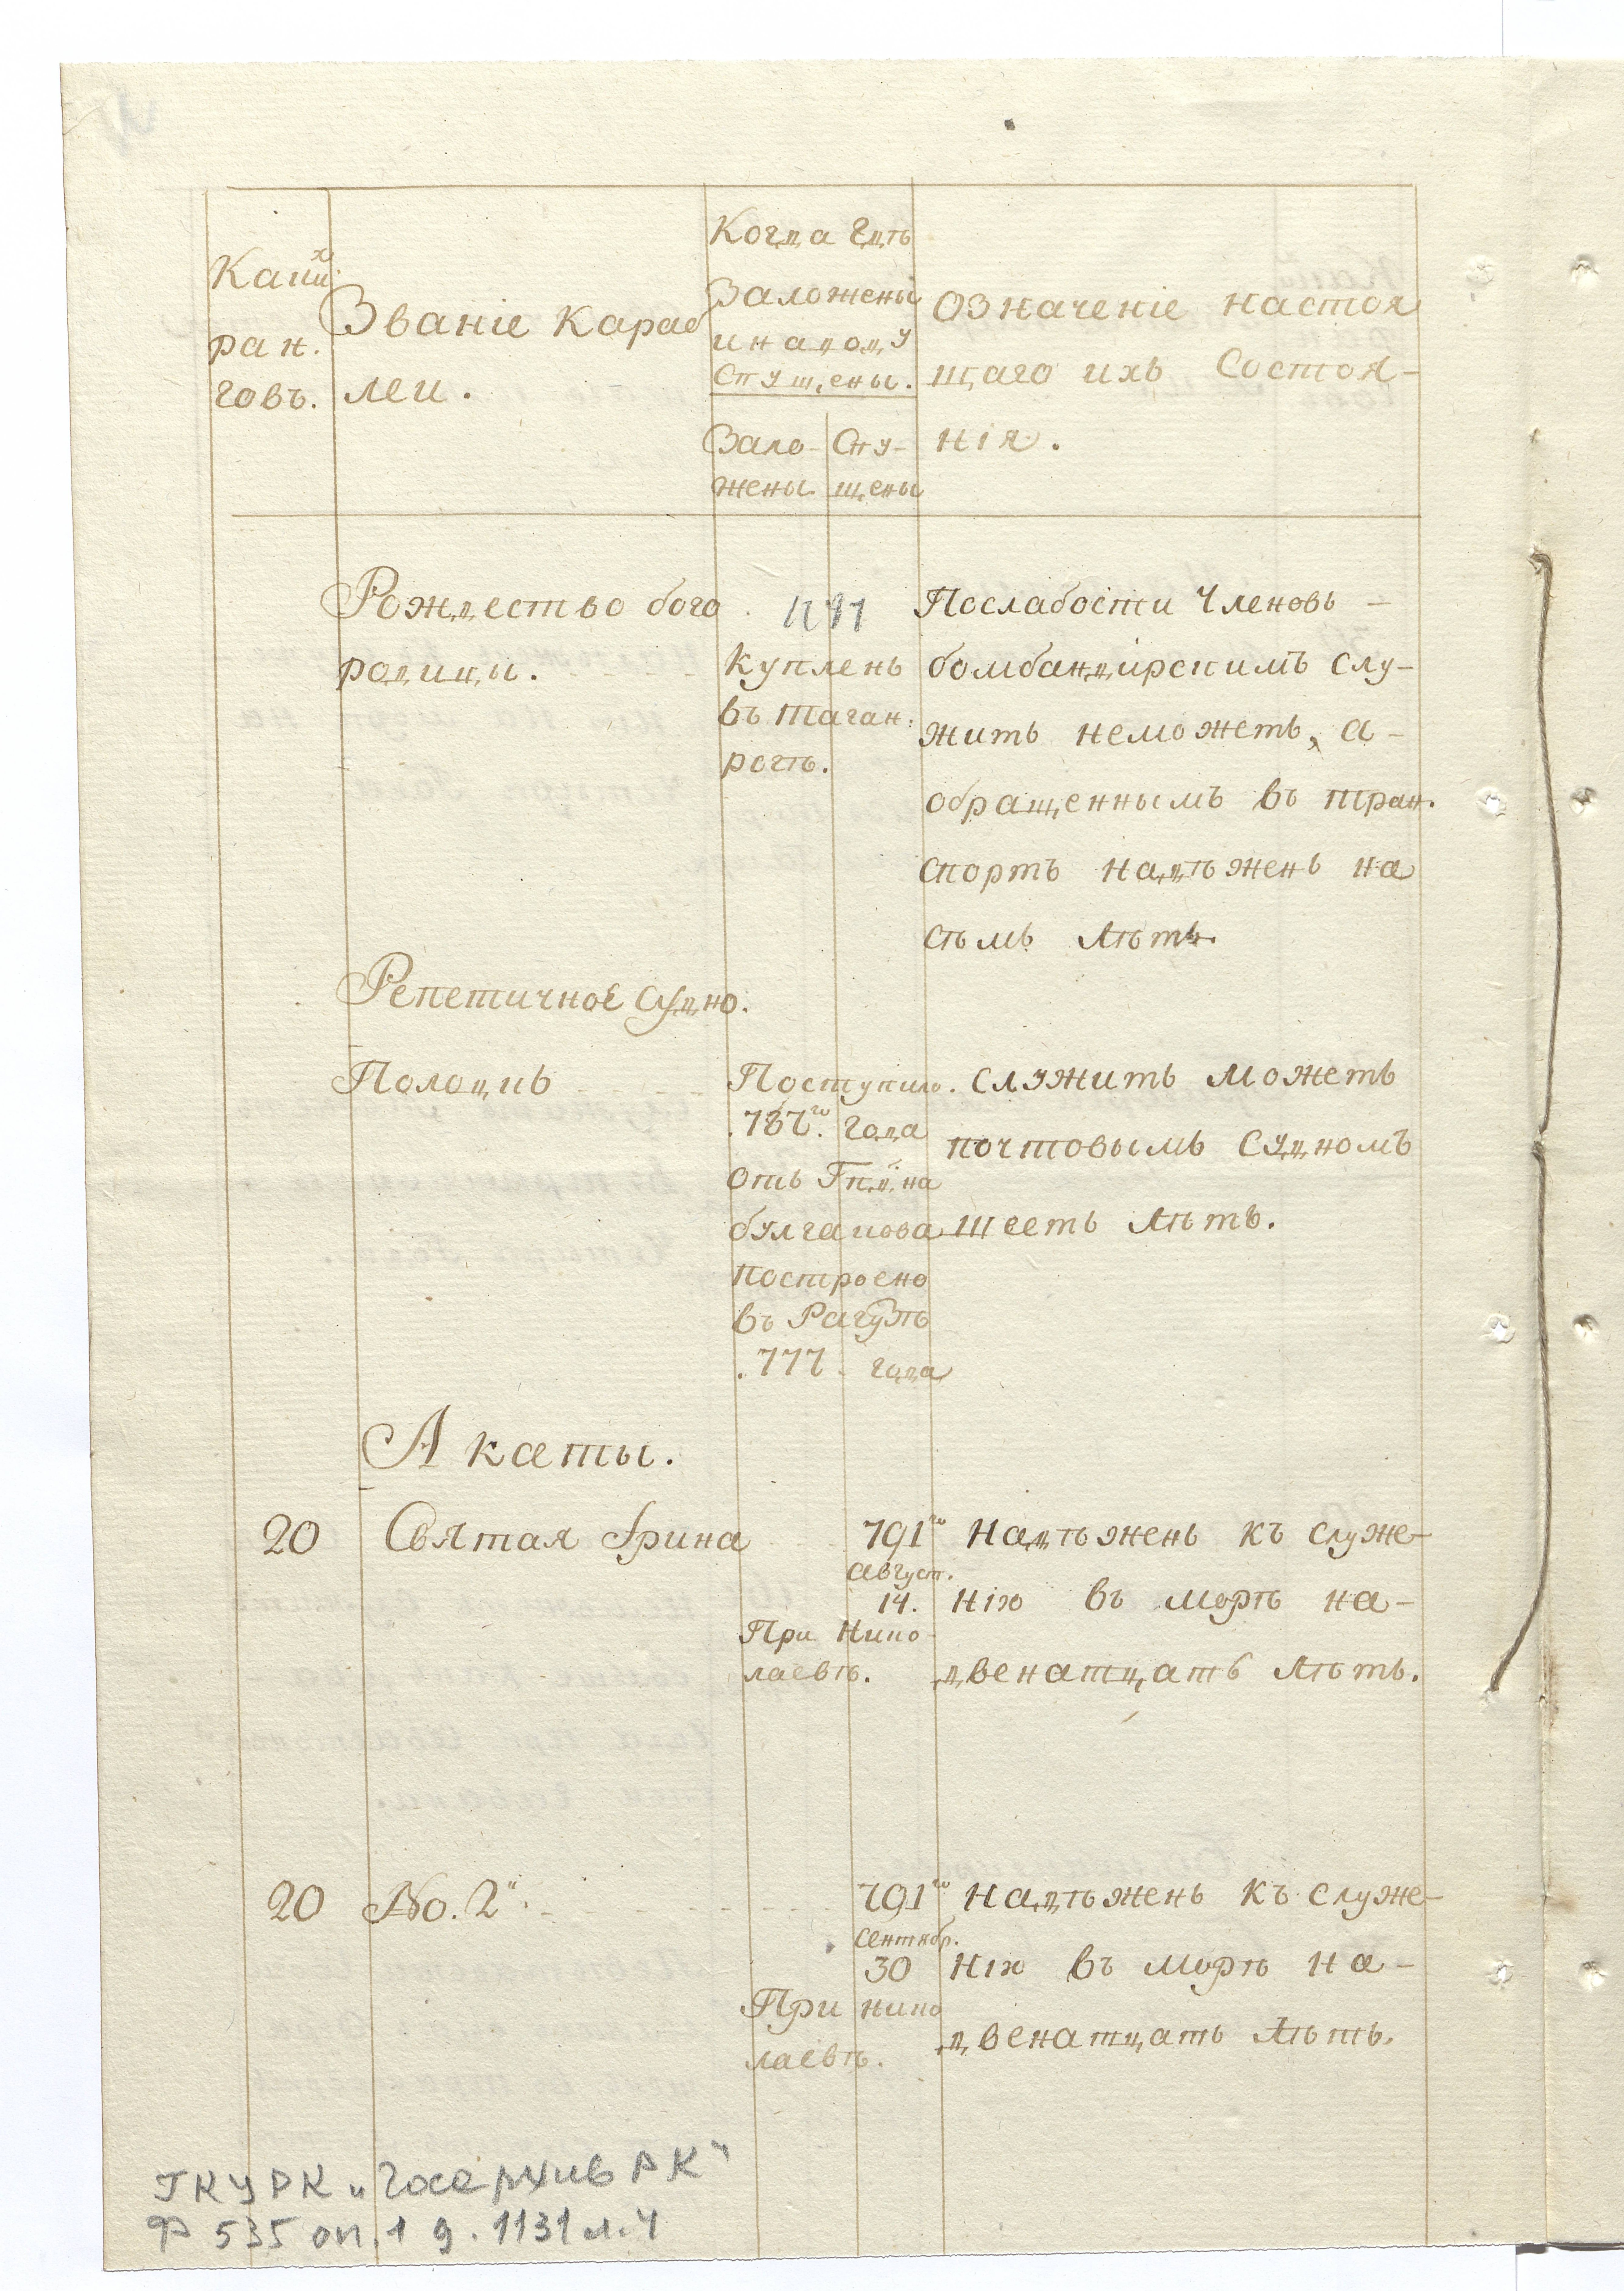 Каких
ран.
говъ.
Званіе караб
леи.
Когда гдѣ
Заложены
и на воду
спущены.
Зало- Спу-
жены щены
Означеніе настоя
щаго ихъ состоя-
нія.
Рождество бого
родицы.
Купленъ
въ Таган:
рогѣ.
По слабости членовъ –
бомбандирскимъ слу-
жить неможетъ, а –
обращеннымъ въ тран.
спортъ надѣженъ на
сѣмь лѣтъ.
Репетичное судно.
Полоцкъ
Поступило.
.787го. года
отъ
булгакова
построено
въ Рагузѣ
.777. года
служить можетъ
почтовымъ судномъ
шесть лѣтъ.
Акаты.
20 Святая Ирина
791го
август.
14.
При Нико
лаевѣ.
надѣженъ къ служе-
нію въ морѣ на-
двенатцать лѣтъ.
20 No. 2й.
791го
сентябр.
30
При Нико
лаевѣ.
надѣженъ къ служе-
нію въ морѣ на-
двенатцать лѣтъ.
ГКУ РК „Госархив РК"
Ф 535 оп. 1 д. 1131 л. 4